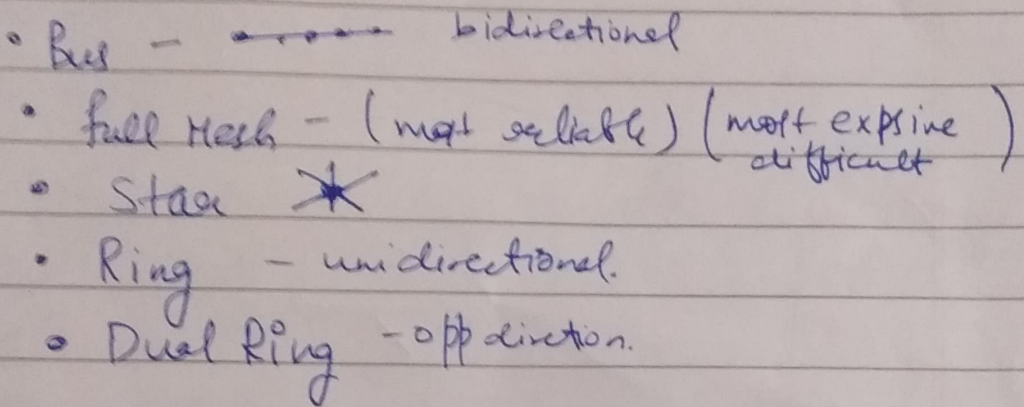 • Bus - bidirectional
• full Mesh - (most reliable) (most expsive difficult)
• Star
• Ring - unidirectional.
• Dual Ring - opp dirction.